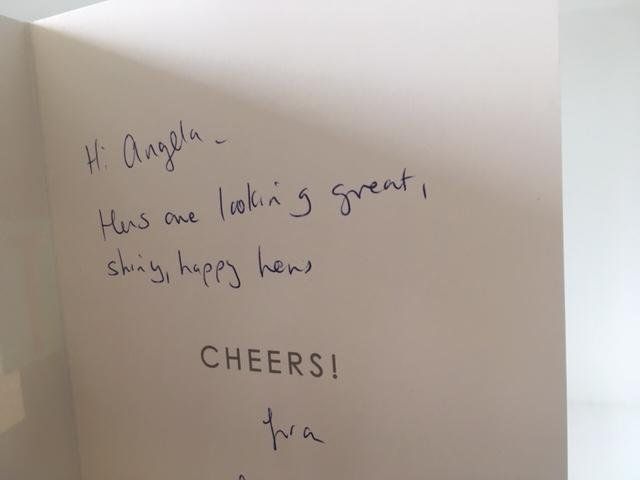 Hi Angela -
Hens are looking great,
shiny, happy hens
CHEERS!